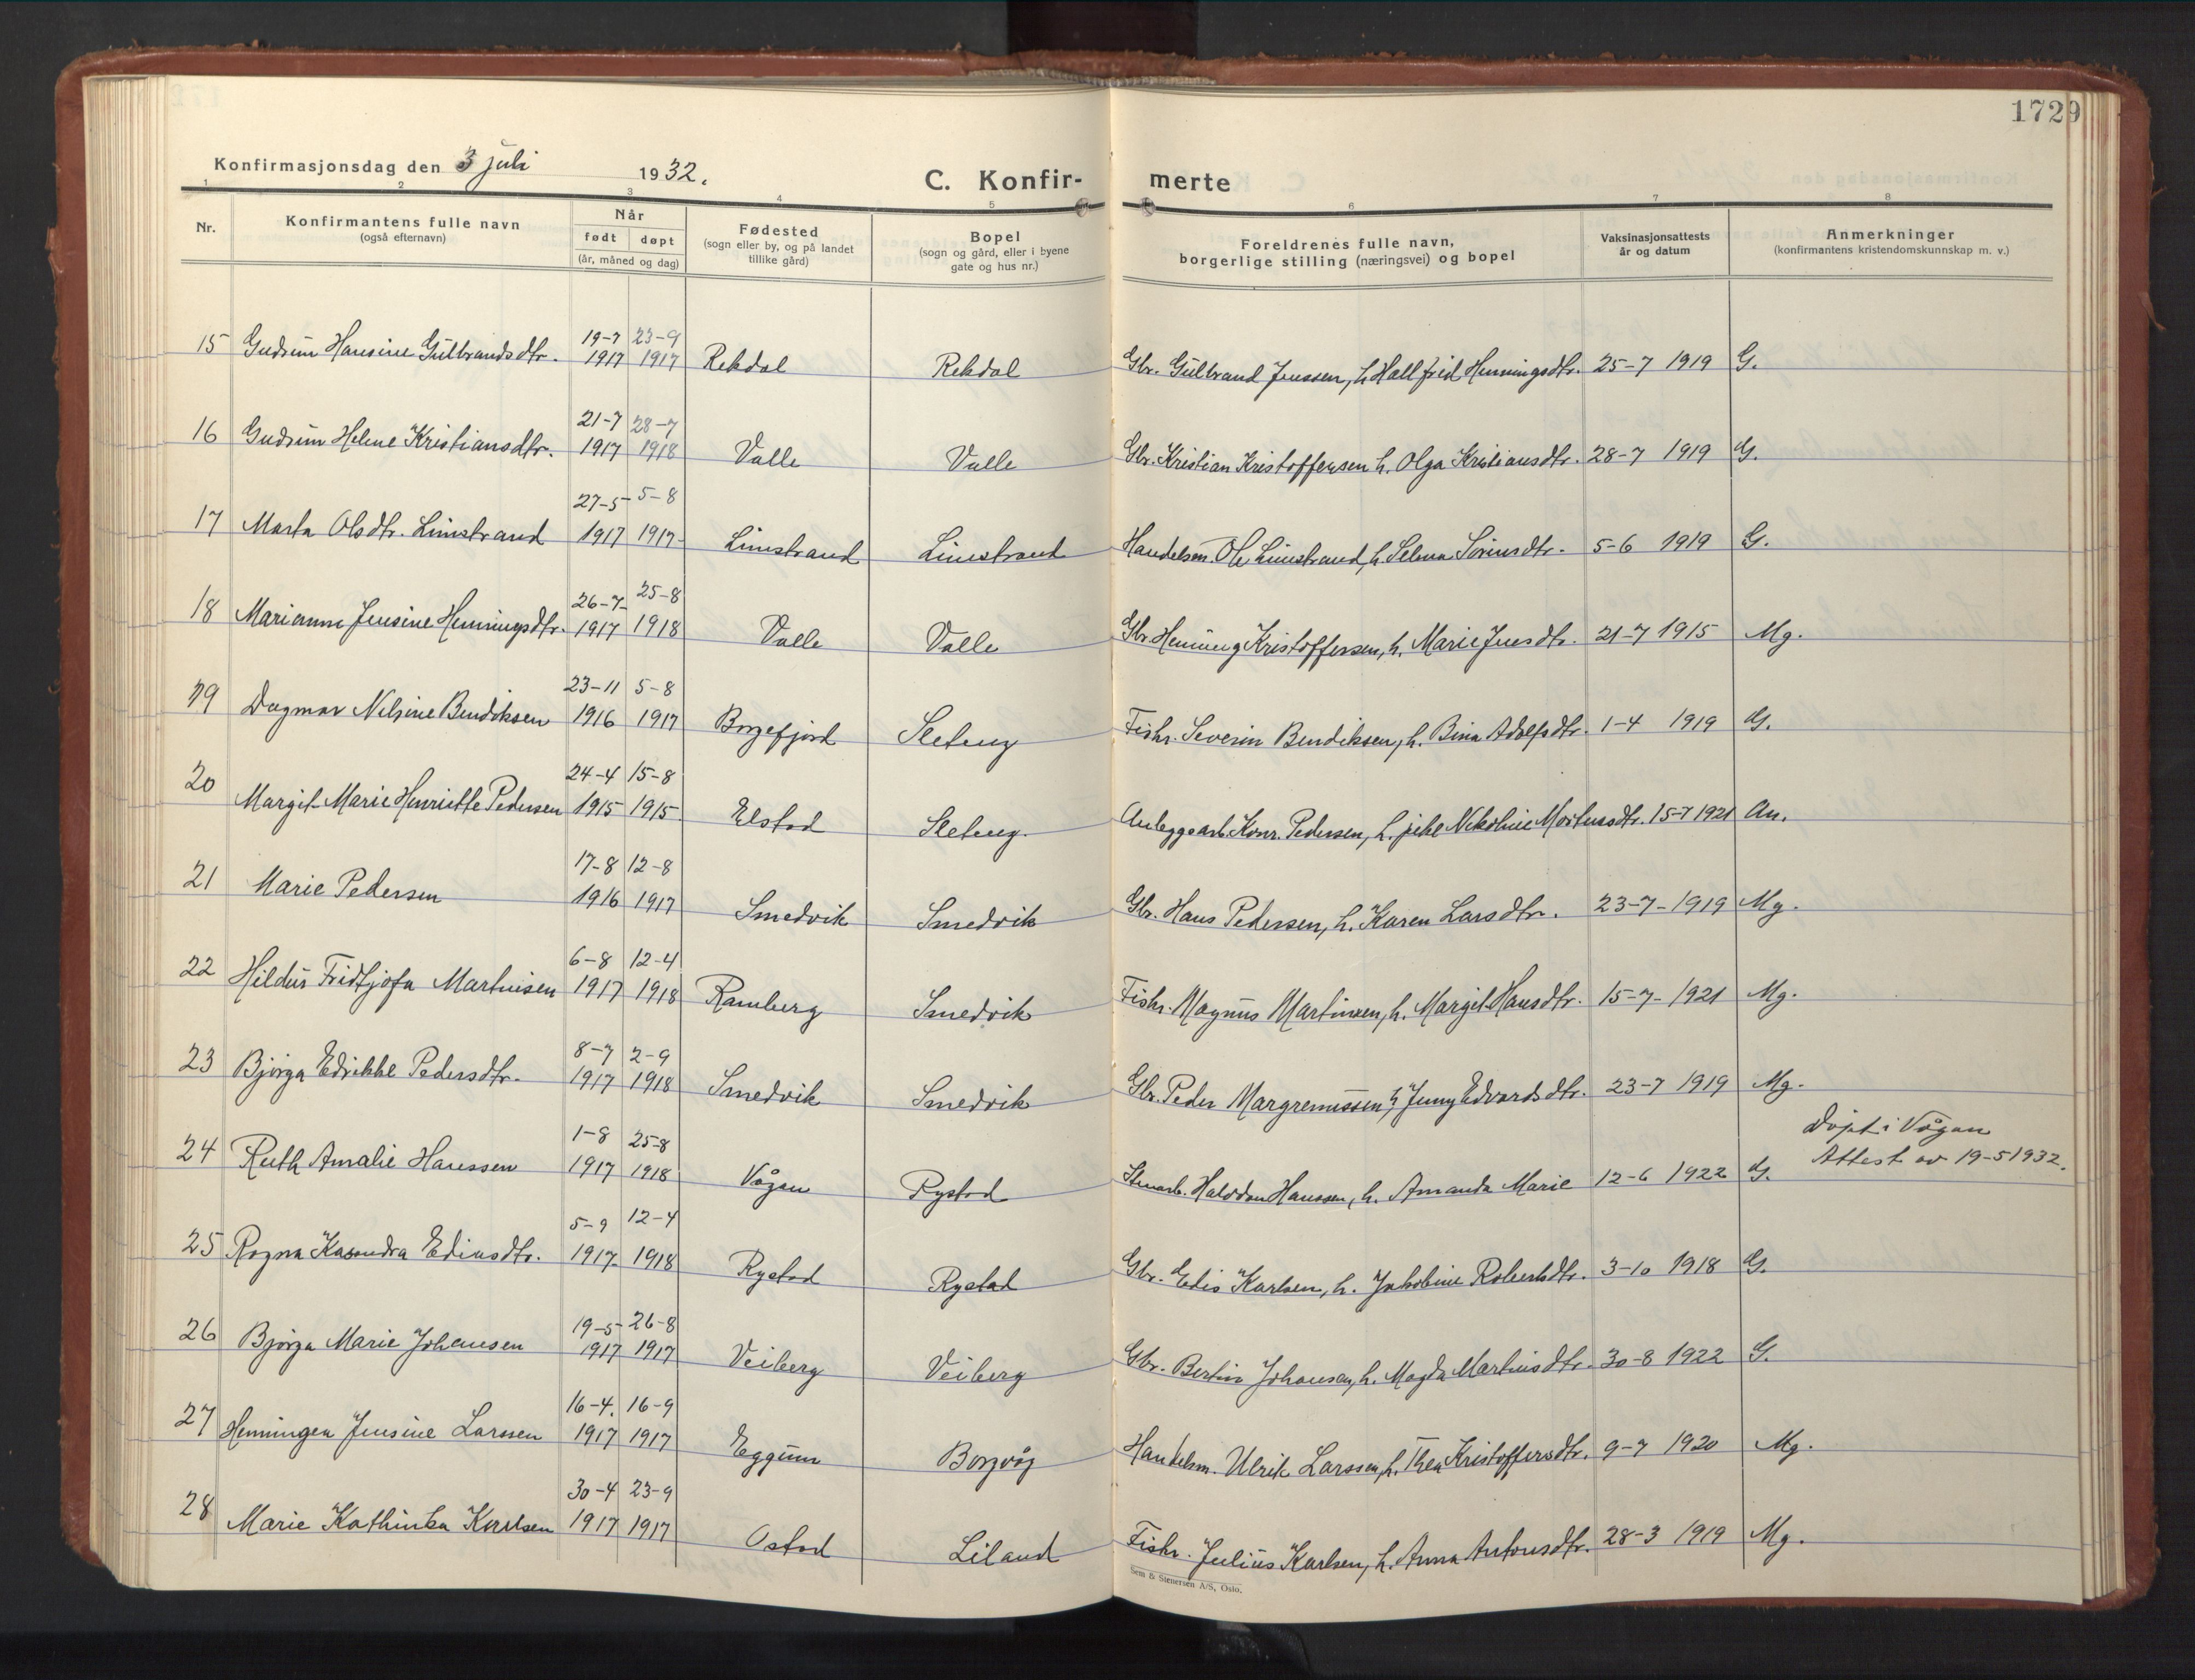 1729
Konfirmasjonsdag den 3 juli 1932.
C. Konfir- merte
1 2 3 4 5 6 7 8
Nr. Konfirmantens fulle navn (også efternavn) Når født døpt (år, måned og dag) Fødested (sogn eller by, og på landet tillike gård) Bopel (sogn og gård, eller i byene gate og hus nr.) Foreldrenes fulle navn, borgerlige stilling (næringsvei) og bopel Vaksinasjonsattests år og datum Anmerkninger (konfirmantens kristendomskunnskap m. v.)
15 Gudrun Hansine Gulbrandsdtr. 19-7 1917 23-9 1917 Rekdal Rekdal Gbr. Gulbrand Jenssen, h. Hallfrid Henningsdtr. 25-7 1919 G.
16 Gudrun Helene Kristiansdtr. 21-7 1917 28-7 1918 Valle Valle Gbr. Kristian Kristoffersen h. Olga Kristiansdtr. 28-7 1919 G.
17 Marta Olsdtr. Limstrand 27-5 1917 5-8 1917 Limstrand Limstrand Handelsm. Ole Limstrand, h. Selma Sørinsdtr. 5-6 1919 G.
18 Marianne Jensine Henningsdtr. 26-7 1917 25-8 1918 Valle Valle Gbr. Henning Kristoffersen, h. Marie Jensdtr. 21-7 1915 Mg.
19 Dagmar Nilsine Bendiksen 23-11 1916 5-8 1917 Borgefjord Sleteng Fisker. Severin Bendiksen, h. Bina Adolfsdtr. 1-4 1919 G.
20 Margit Marie Henriette Pedersen 24-4 1915 15-8 1915 Elstad Sleteng. Anleggsarb. Konr. Pedersen, h. Nikoline Mortensdtr. 15-7 1921 An.
21 Marie Pedersen 17-8 1916 12-8 1917 Smedvik Smedvik Gbr. Hans Pedersen, h. Karen Larsdtr. 23-7-1919 Mg.
22 Hildur Fridtjofa Martinsen 6-8 1917 12-4 1918 Ramberg Smedvik Fiskr. Magnus Martinsen, h. Margit Hansdtr. 15-7-1921 Mg.
23 Bjørga Edrikke Pedersdtr. 8-7 1917 2-9 1918 Smedvik Smedvik Gbr. Peder Margrenussen, h. Jenny Edvardsdtr. 23-7 1919 Mg.
24 Ruth Amalie Hanssen 1-8 1917 25-8 1918 Vågan Rystad Stenarb. Halvdan Hanssen, h. Amanda Marie 12-6 1922 G. Døpt i Vågan
Attest av 19-5 1932.
25 Ragna Kasandra Edinsdtr. 5-9 1917 12-4 1918 Rystad Rystad Gbr. Edis Karlsen, h. Jakobine Robertsdtr. 3-10 1918 G.
26 Bjørga Marie Johansen 19-5 1917 26-8 1917 Veiberg Veiberg Gbr. Bertin Johansen, h. Magda Martinsdtr. 30-8 1922 G.
27 Henningea Jensine Larssen 16-4. 1917 16-9 1917 Eggum Borgvåg Handelsm. Ulrik Larssen, h. Thea Kristoffersdtr. 9-7 1920 Mg.
28 Marie Kathinka Karlsen 30-4 1917 23-9 1917 Ostad Liland Fiskr. Julius Karlsen, h. Anna Antonsdtr. 28-3 1919 Mg.
Sem & Stenersen A/S, Oslo.